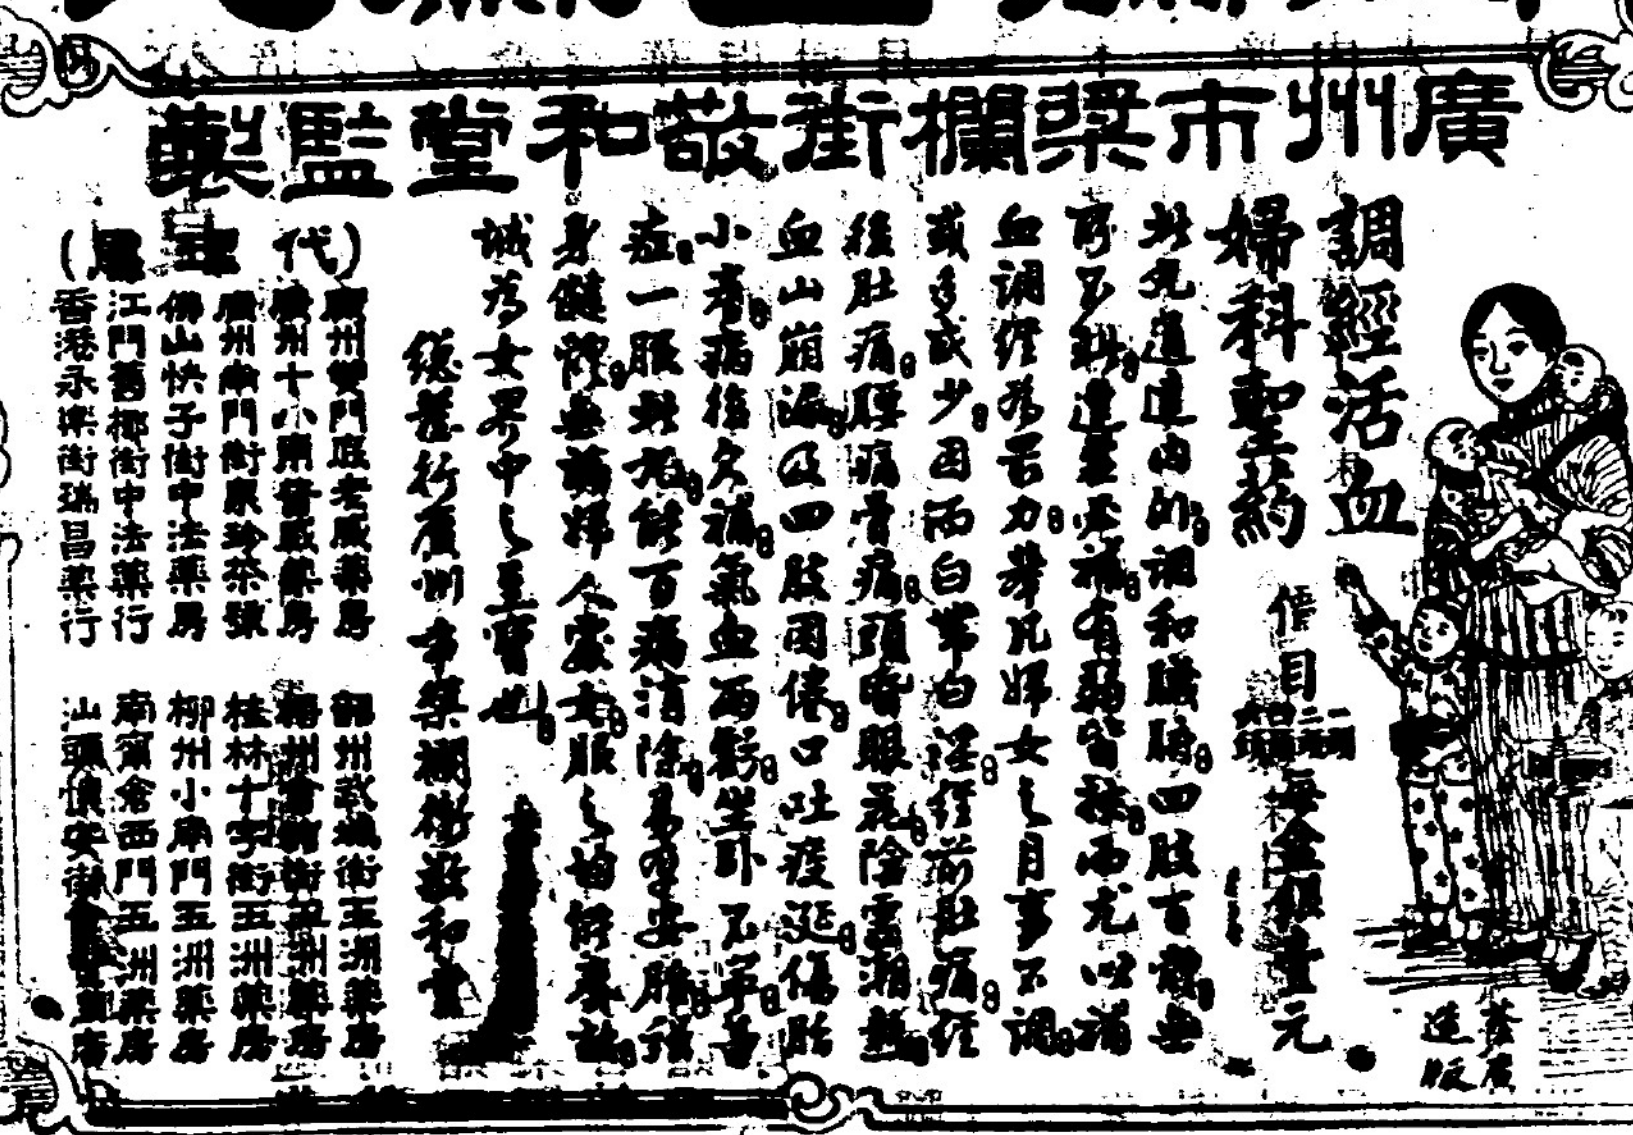 廣州市槳欄街敬和堂監製
調經活血
婦科聖藥
價目 每盒銀壹元
此丸通達內外調和臟腑四肢百體無
所不到速達至寒補有弱皆扶而尤以補
血調經為首力舉凡婦女之月事不調
或多或少因而白帶白淫經前肚痛經
後肚痛腰痛骨痛頭暈眼花陰虛潮熱
血山崩漏及四肢困倦口吐痰涎傷胎
小產病後欠補氣血兩虧坐臥不寧等
症一服此丸能百病消除易受安胎
身健體無論婦人室女服之均能奏效
誠為女界中之至寶也
總發行廣州市槳欄街敬和堂
(代理處)
廣州雙門底老威藥房
廣州十八甫普威藥房
廣州南門街泉珍茶號
佛山快子街中法藥房
江門舊椰街中法藥行
香港永樂街瑞昌藥行
韶州武城街五洲藥房
梧州 街五洲藥房
桂林十字街五洲藥房
柳州小南門五洲藥房
南寧倉西門五洲藥房
汕頭懷安街 藥房
造版